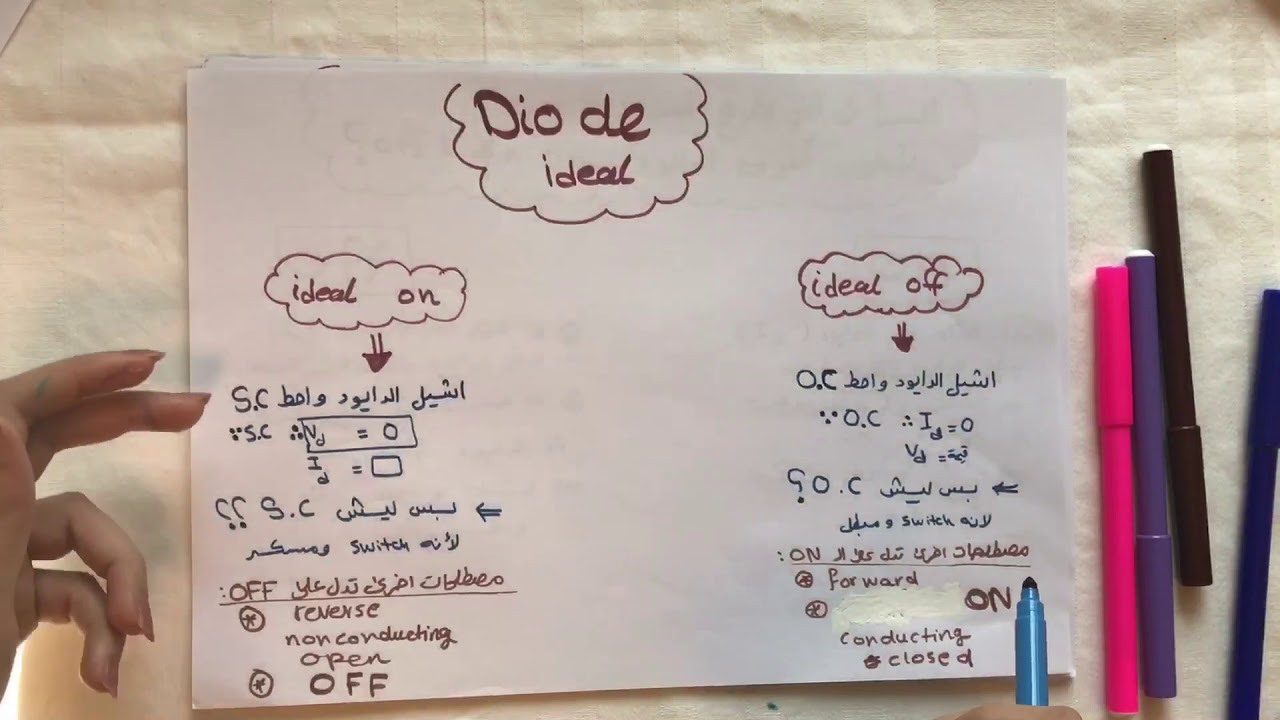 Diode
ideal
ideal on
اشيل الدايود واحط S.C
∵ S.C ∴ Vd = 0
Id =
⇐ بس ليش S.C ؟؟
لأنه switch ومسكر
مصطلحات اخرى تدل على OFF:
reverse
nonconducting
open
OFF
ideal off
اشيل الدايود واحط O.C
∵ O.C ∴ Id = 0
Vd = قيمة
⇐ بس ليش O.C ؟
لانه switch ومبطل
مصطلحات اخرى تدل على الـ ON:
forward
ON
conducting
closed